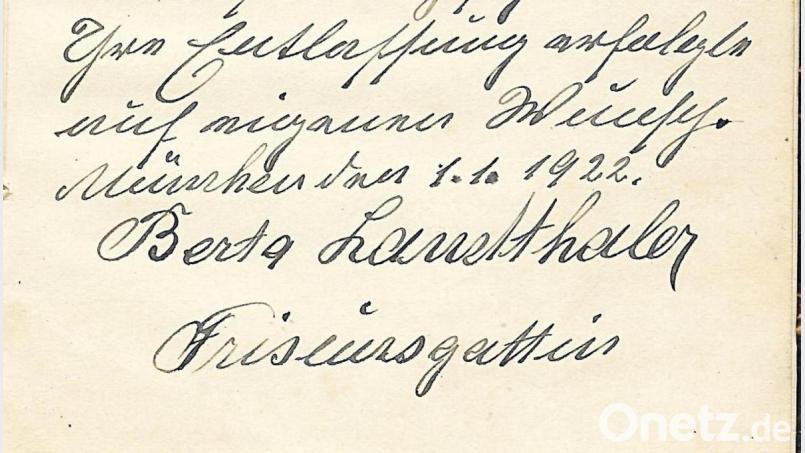 Ihre Entlassung erfolgte
auf eigenen Wunsch.
München den 1.1. 1922.
Berta
Friseursgattin
Onetz.de